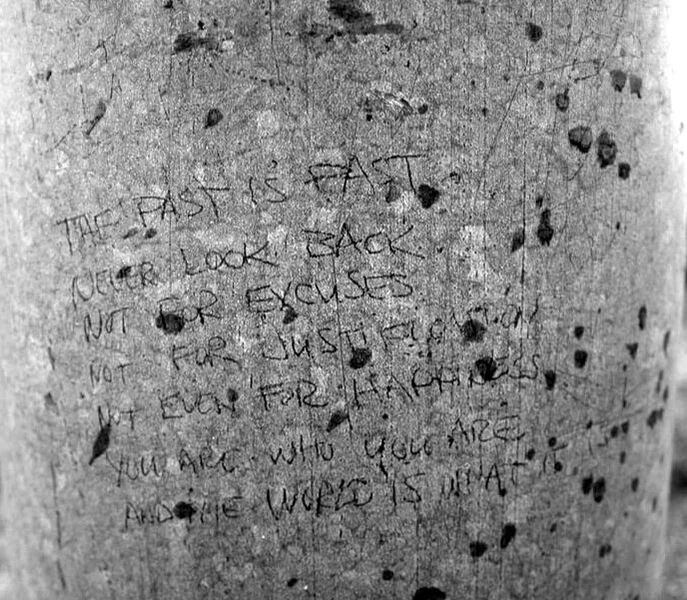 THE PAST IS FAST.
NEVER LOOK BACK.
NOT FOR EXCUSES
NOT FOR JUSTIFICATION
NOT EVEN FOR HAPPINESS
YOU ARE WHO YOU ARE
AND THE WORLD IS WHAT IT IS